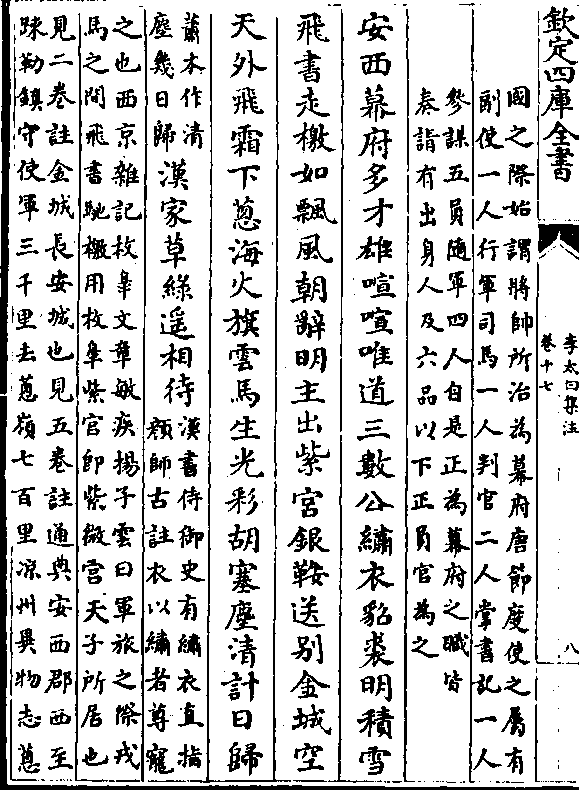 欽定四庫全書
李太白集注
卷十七
八
國之際始謂將帥所治為幕府唐節度使之屬有
副使一人行軍司馬一人判官二人掌書記一人
參謀五員隨軍四人自是正為幕府之職皆
奏請有出身人及六品以下正員官為之
安西幕府多才雄喧喧唯道三數公繡衣貂裘明積雪
飛書走檄如飄風朝辭明主出紫宮銀鞍送別金城空
天外飛霜下蔥海火旗雲馬生光彩胡塞塵清計日歸
蕭本作清
塵幾日歸
漢家草綠遙相待
漢書侍御史有繡衣直指
顏師古註衣以繡者尊寵
之也西京雜記枚臯文章敏疾揚子雲曰軍旅之際戎
馬之間飛書馳檄用枚臯紫宮即紫微宮天子所居也
見二卷註金城長安城也見五卷註通典安西郡西至
踈勒鎮守使軍三千里去蔥嶺七百里涼州異物志蔥